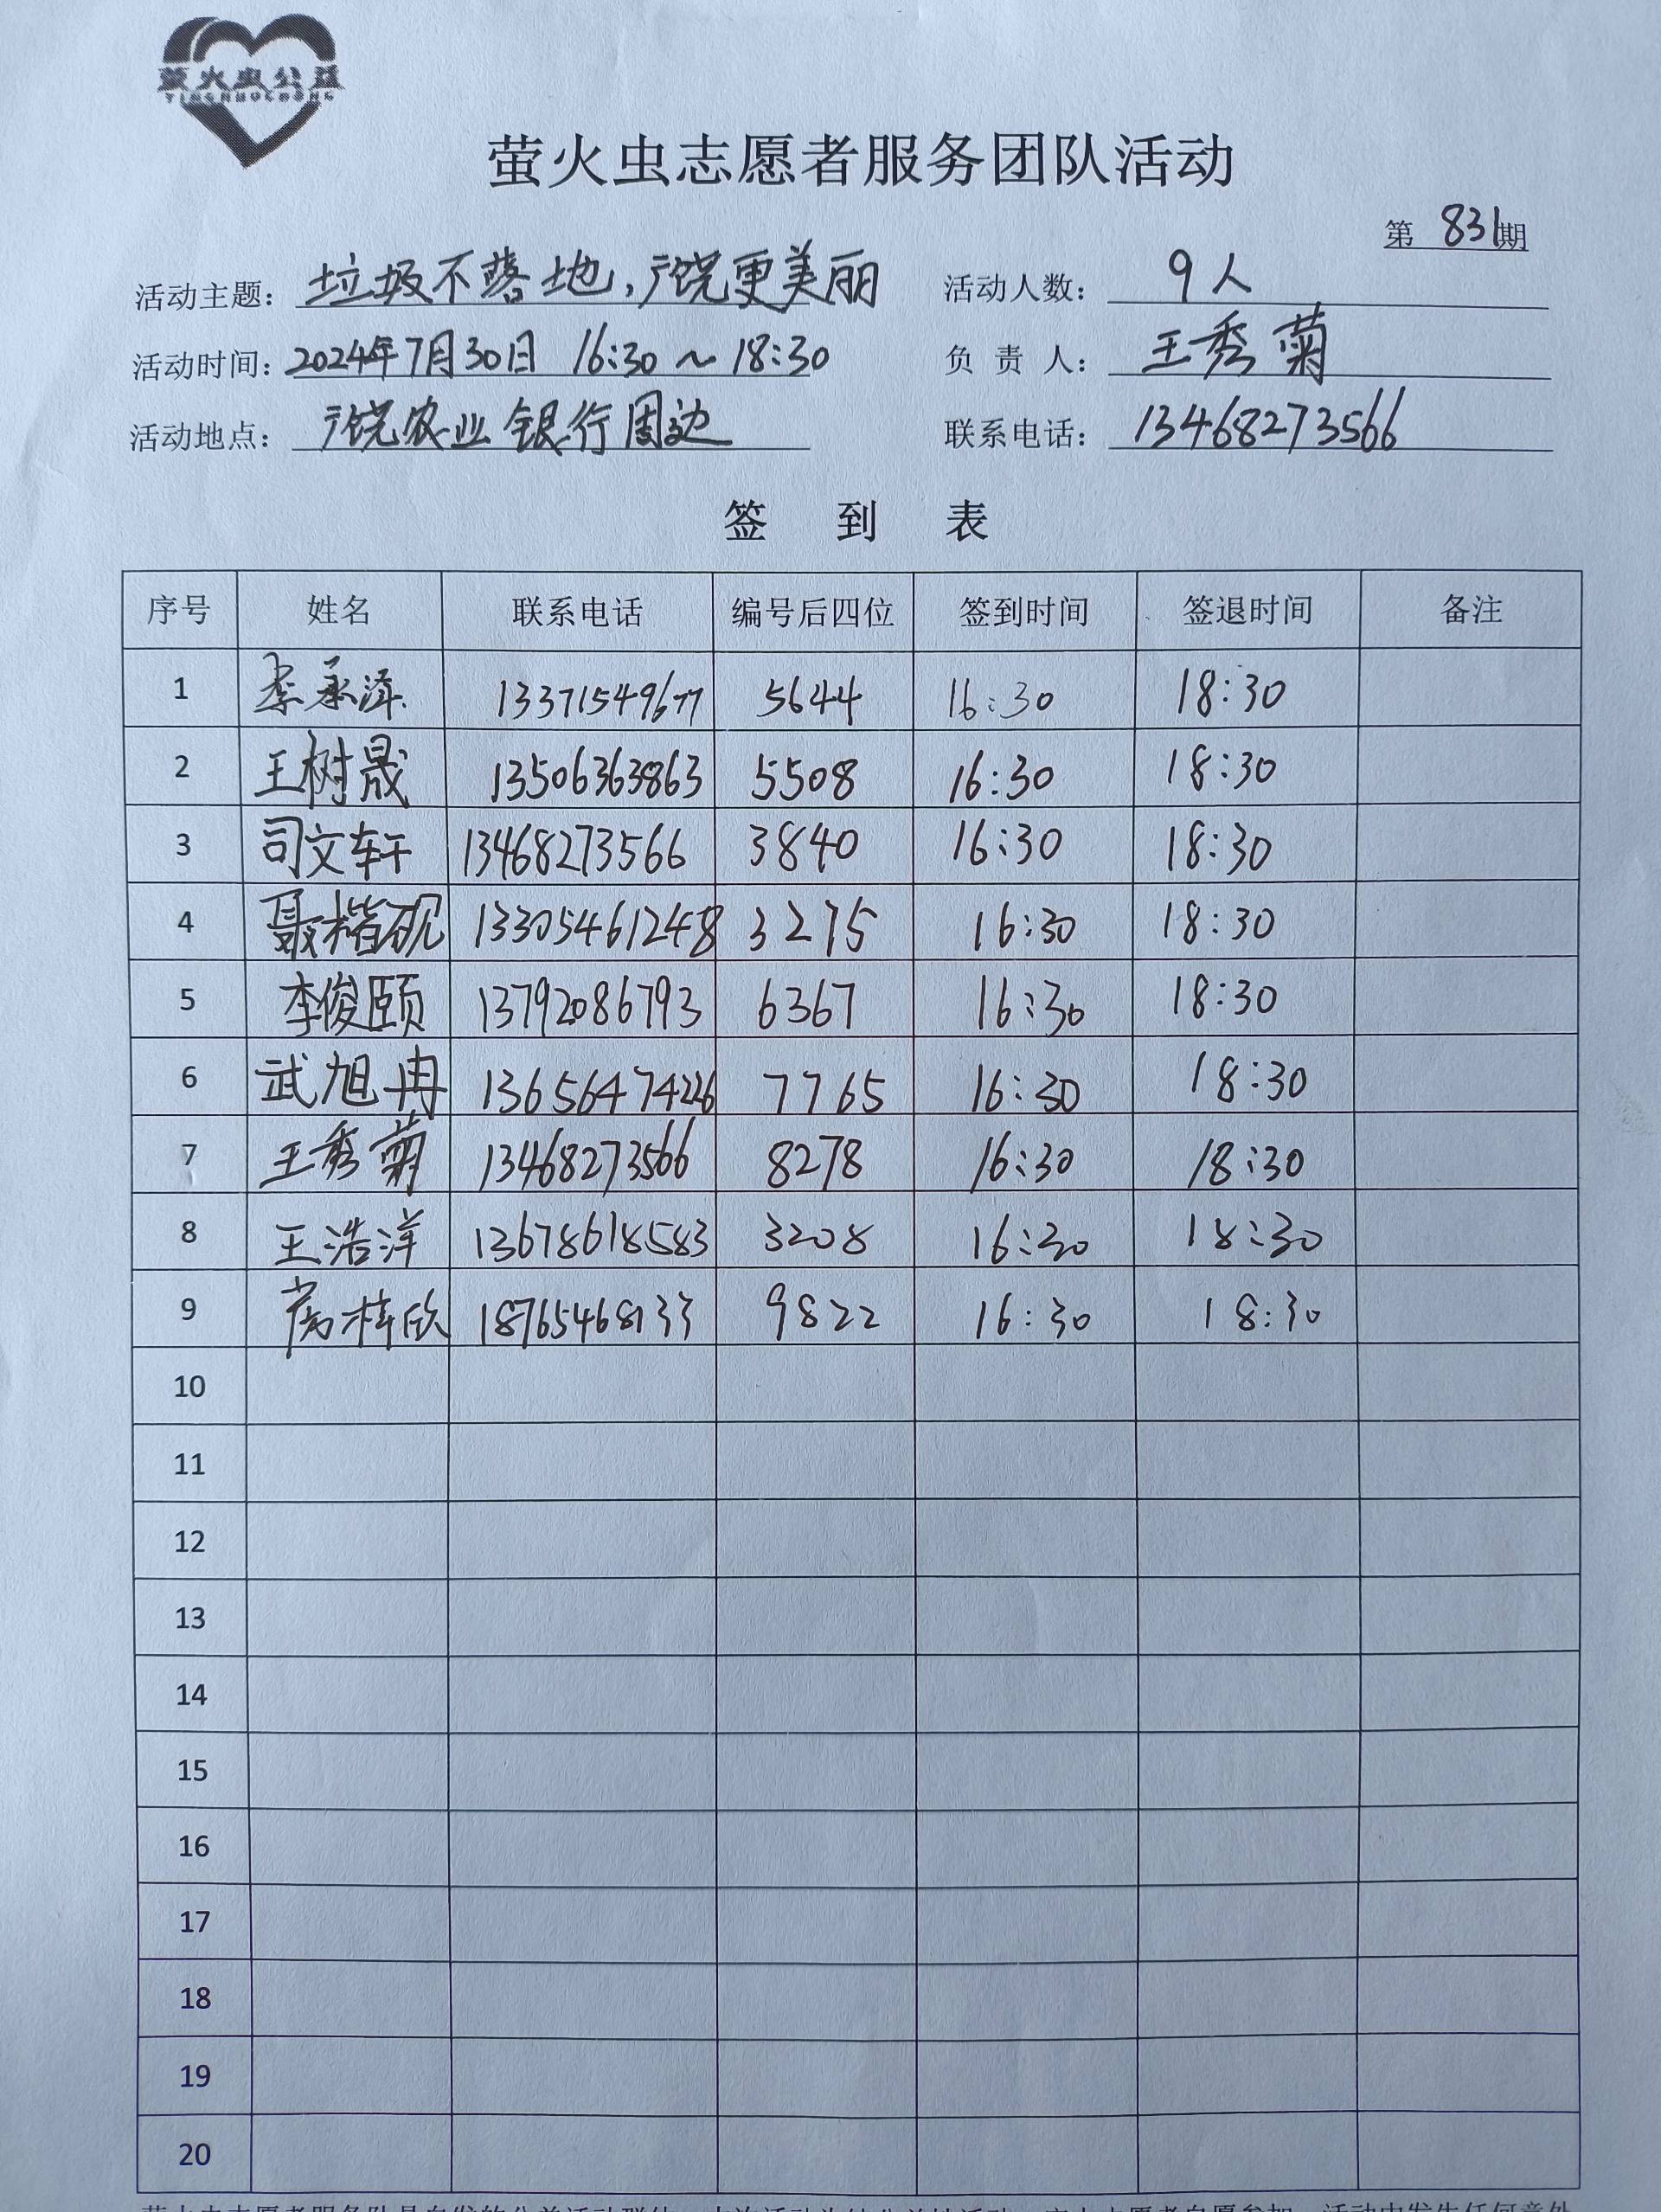 萤火虫公益
YINGHUOCHONG
萤火虫志愿者服务团队活动
第 831期
活动主题: 垃圾不落地,广饶更美丽 活动人数: 9人
活动时间: 2024年7月30日 16:30~18:30 负责人: 王秀菊
活动地点: 广饶农业银行周边 联系电话: 13468273566
签到表
序号 姓名 联系电话 编号后四位 签到时间 签退时间 备注
1 李承泽 13371549677 5644 16:30 18:30
2 王树晟 13506363863 5508 16:30 18:30
3 司文轩 13468273566 3840 16:30 18:30
4 聂楷砚 13305461248 3275 16:30 18:30
5 李俊颐 13792086793 6367 16:30 18:30
6 武旭冉 13656474226 7765 16:30 18:30
7 王秀菊 13468273566 8278 16:30 18:30
8 王浩洋 13678618583 3208 16:30 18:30
9 梓欣 18765468133 9822 16:30 18:30
10
11
12
13
14
15
16
17
18
19
20